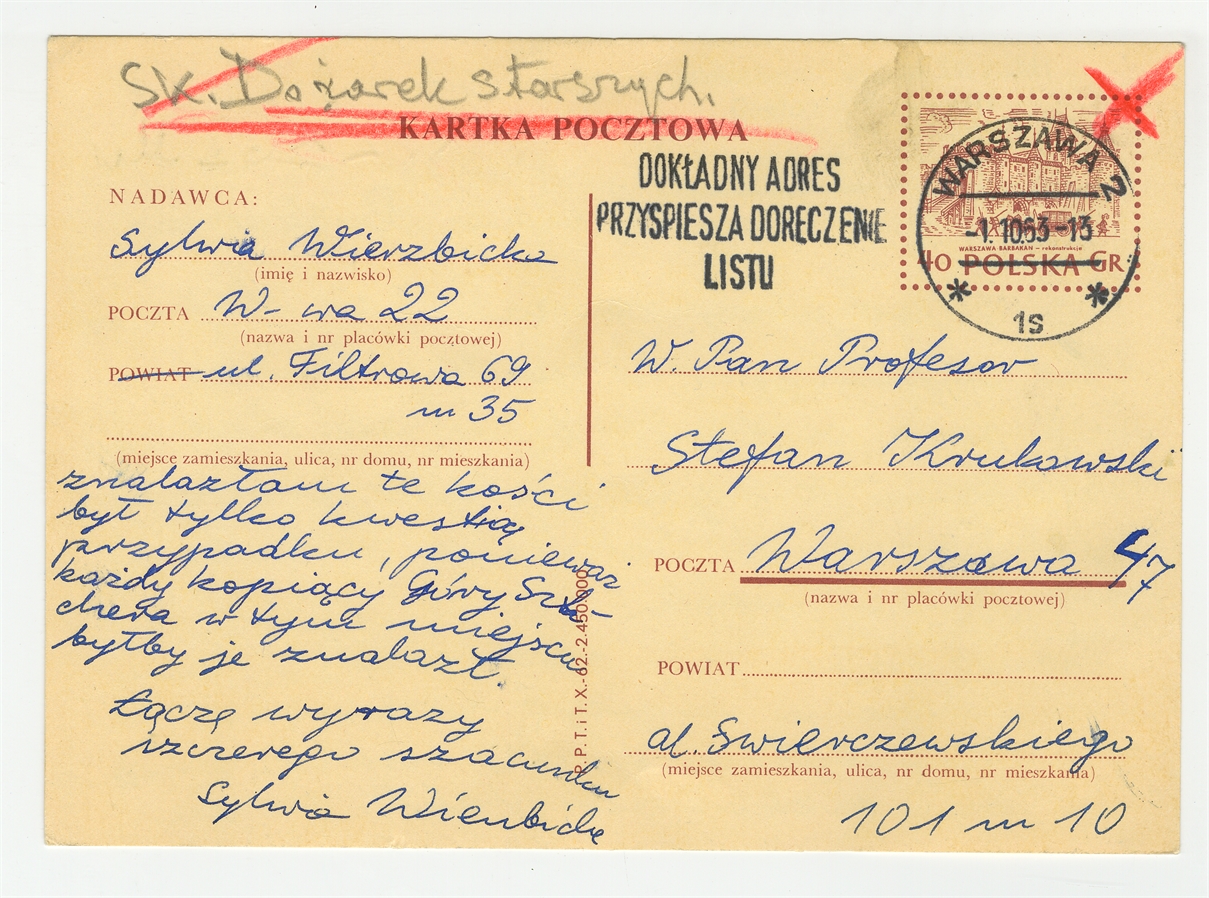 SK. Dożarek starszych.
KARTKA POCZTOWA
DOKŁADNY ADRES
PRZYSPIESZA DORĘCZENIE
LISTU
WARSZAWA 2
-1.1063-13
1S
WARSZAWA-BARBAKAN - rekonstrukcja
40 POLSKA GR
NADAWCA:
Sylwia Wierzbicka
(imię i nazwisko)
POCZTA W-wa 22
(nazwa i nr placówki pocztowej)
POWIAT ul. Filtrowa 69
m 35
(miejsce zamieszkania, ulica, nr domu, nr mieszkania)
znalazłam te kości
był tylko kwestią
przypadku, ponieważ
każdy kopiący Góry Szl-
chera w tym miejscu
byłby je znalazł.
Łączę wyrazy
szczerego szacunku
Sylwia Wierzbicka
P.P.T.iT.X.-62.-2.450.000.
W. Pan Profesor
Stefan Krukowski
POCZTA Warszawa 47
(nazwa i nr placówki pocztowej)
POWIAT
al. Swierczewskiego
(miejsce zamieszkania, ulica, nr domu, nr mieszkania)
101 m 10